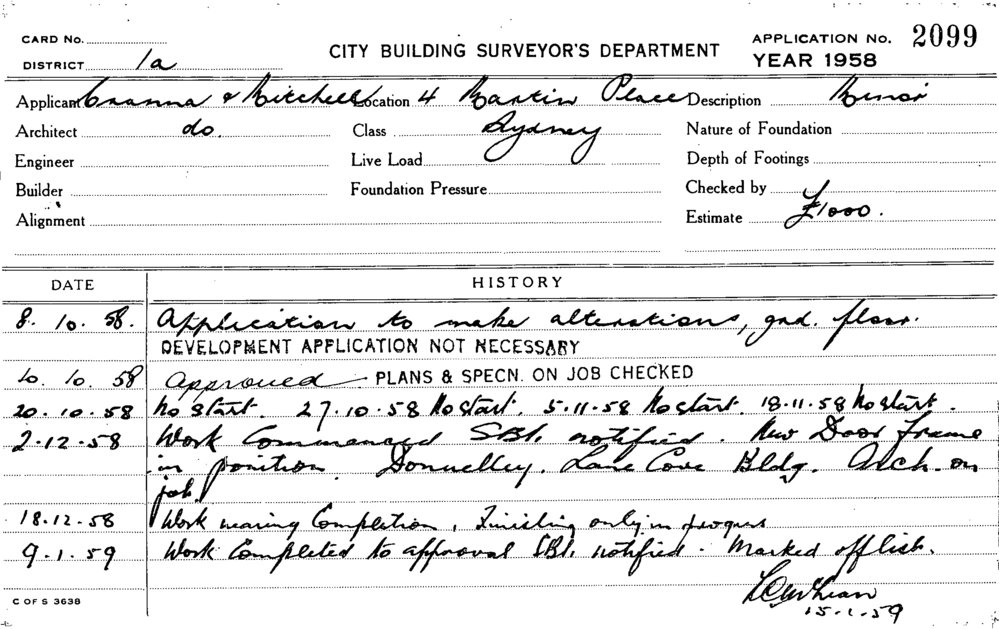 CARD No.
DISTRICT 1a
CITY BUILDING SURVEYOR'S DEPARTMENT
APPLICATION No. 2099
YEAR 1958
Applicant Cranna & Mitchell Location 4 Martin Place Description Minor
Architect do. Class Sydney Nature of Foundation
Engineer Live Load Depth of Footings
Builder Foundation Pressure Checked by
Alignment Estimate £1000.
DATE HISTORY
8. 10. 58. Application to make alterations, gnd. floor.
DEVELOPMENT APPLICATION NOT NECESSARY
10. 10. 58 Approved PLANS & SPECN. ON JOB CHECKED
20. 10. 58 No start. 27.10.58 No start. 5.11.58 No start. 18.11.58 No start.
2.12.58 Work Commenced notified. New Door frame
in position. Donnelley. Lane Cove Bldg. Arch. on
job.
18.12.58 Work nearing Completion, Finishing only in progress
9.1.59 Work Completed to approval notified. Marked off list.
15.1.59
C OF S 3638